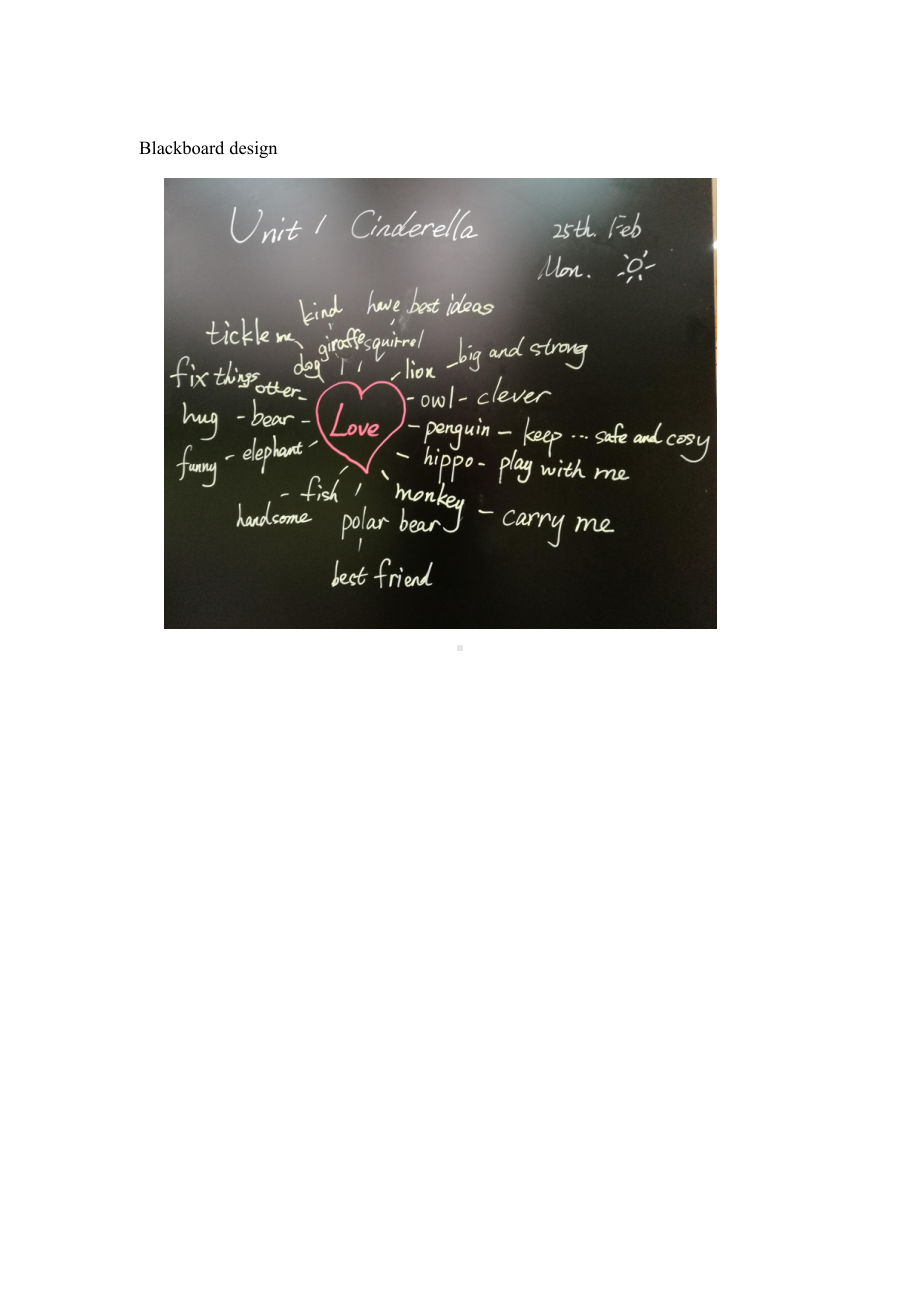 Blackboard design
Unit 1 Cinderella 25th. Feb
Mon.
kind have best ideas
tickle me giraffe squirrel
dog lion - big and strong
fix things otter
owl - clever
hug - bear - Love
penguin - keep ... safe and cosy
funny - elephant
hippo - play with me
fish monkey
handsome polar bear - carry me
best friend